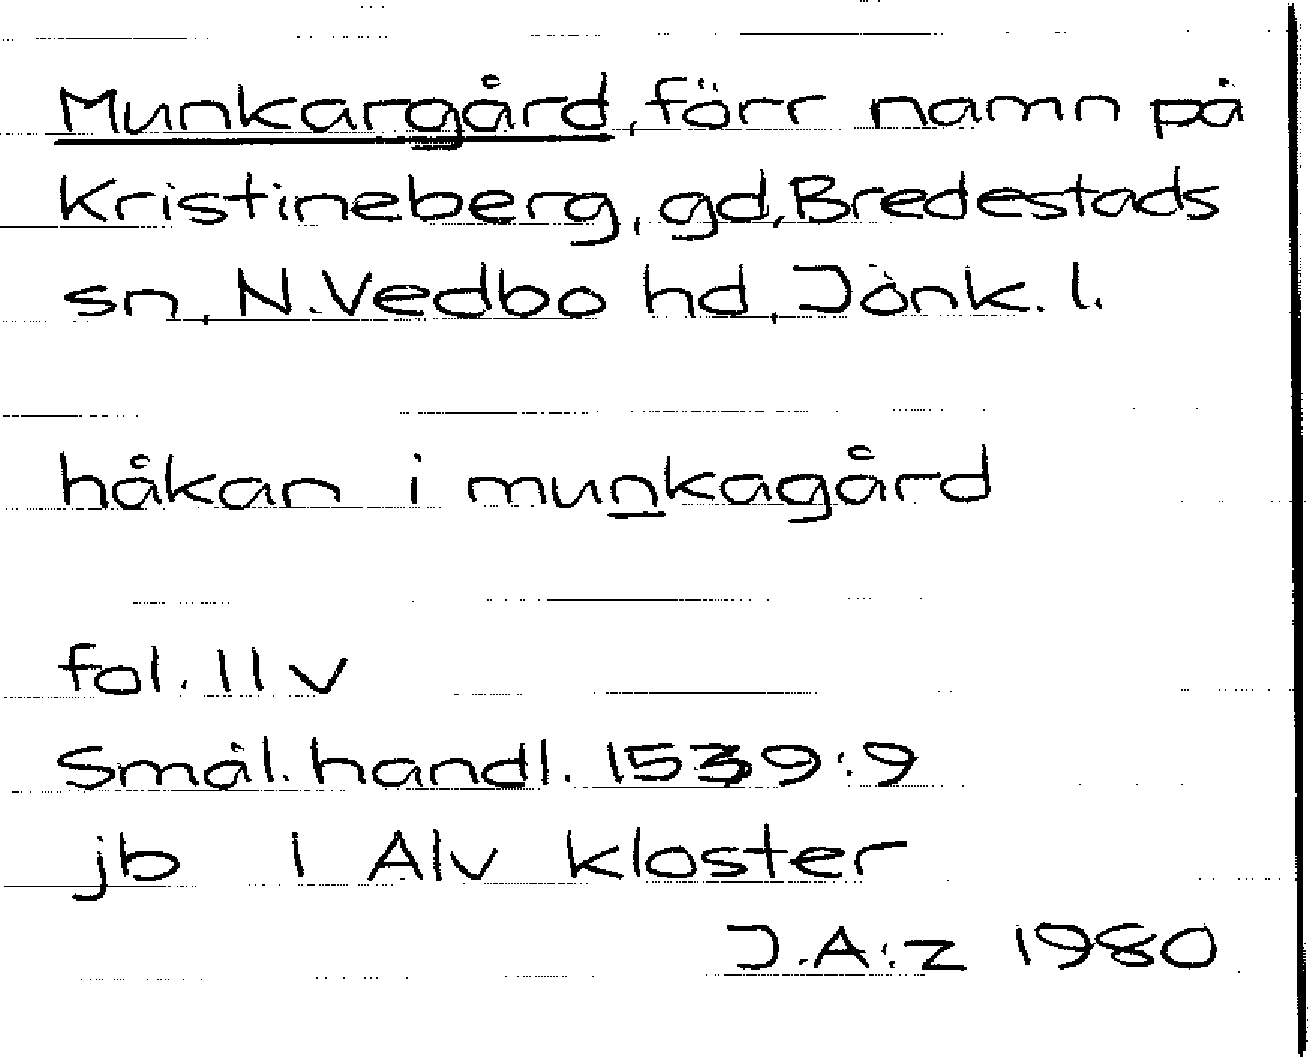 Munkargård, förr namn på
Kristineberg, gd, Bredestads
sn, N. Vedbo hd, Jönk. l.
håkan i munkagård
fol. 11 v
Smål. handl. 1539:9
jb 1 Alv kloster
J.A:z 1980